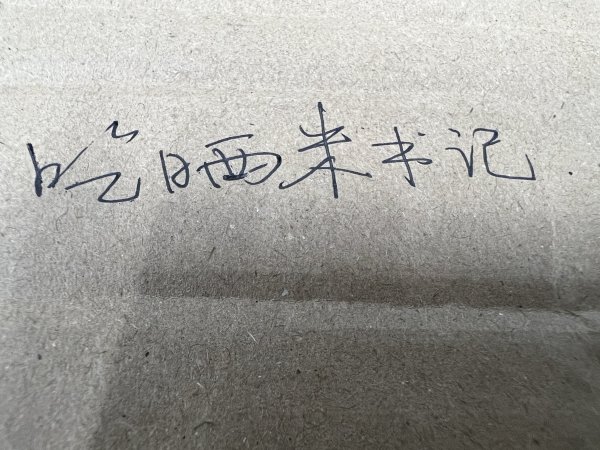 吃晒米书记